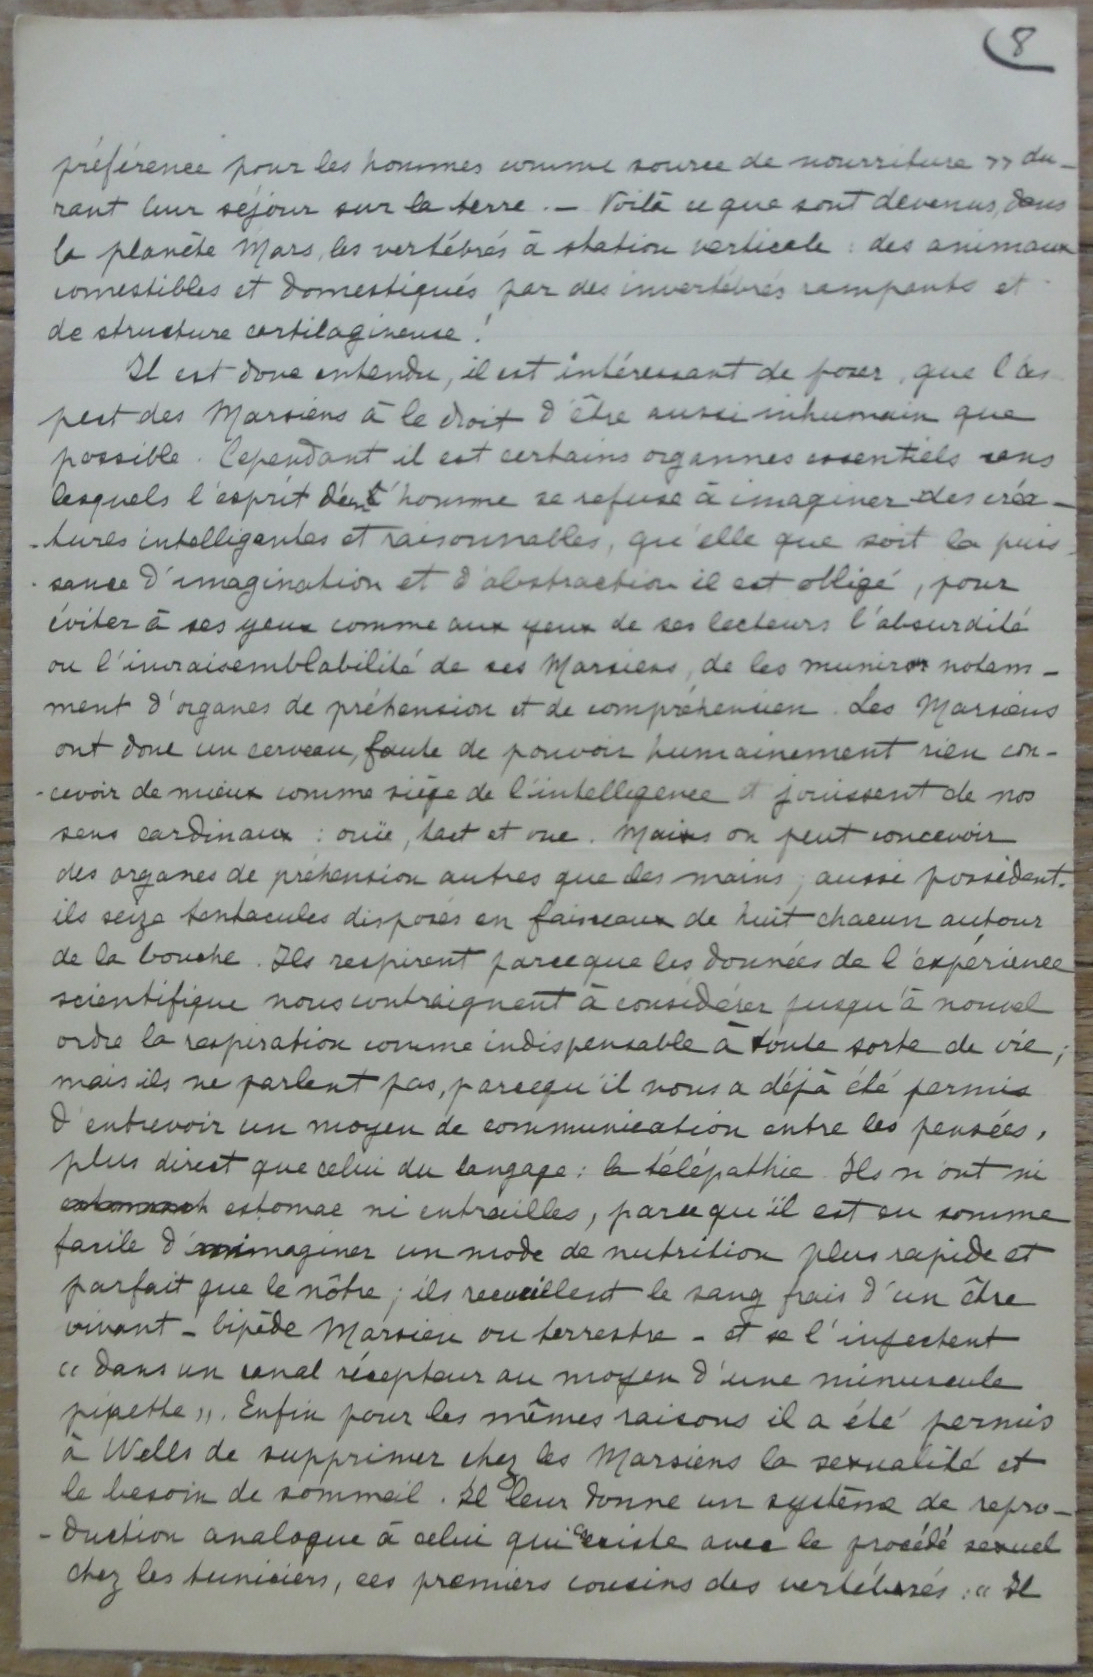 8
préférence pour les hommes comme source de nourriture » du-
rant leur séjour sur la terre. — Voilà ce que sont devenus, dans
la planète Mars, les vertébrés à station verticale : des animaux
comestibles et domestiqués par des invertébrés rampants et
de structure cartilagineuse !
Il est donc entendu, il est intéressant de poser, que l'as-
pect des Marsiens à le droit d'être aussi inhumain que
possible. Cependant il est certains organnes essentiels sans
lesquels l'esprit de l'homme se refuse à imaginer des créa-
-tures intelligentes et raisonnables, qu'elle que soit la puis-
-sance d'imagination et d'abstraction il est obligé, pour
éviter à ses yeux comme aux yeux de ses lecteurs l'absurdité
ou l'invraisemblabilité de ses Marsiens, de les munir notam-
ment d'organes de préhension et de compréhension. Les Marsiens
ont donc un cerveau, faute de pouvoir humainement rien con-
-cevoir de mieux comme siège de l'intelligence et jouissent de nos
sens cardinaux : ouïe, tact et vue. Mais on peut concevoir
des organes de préhension autres que des mains ; aussi possèdent-
ils seize tentacules disposés en faisceaux de huit chacun autour
de la bouche. Ils respirent parceque les données de l'expérience
scientifique nous contraignent à considérer jusqu'à nouvel
ordre la respiration comme indispensable à toute sorte de vie ;
mais ils ne parlent pas, parcequ'il nous a déjà été permis
d'entrevoir un moyen de communication entre les pensées,
plus direct que celui du langage : la télépathie. Ils n'ont ni
estomac ni entrailles, parcequ'il est en somme
facile d'imaginer un mode de nutrition plus rapide et
parfait que le nôtre ; ils recueillent le sang frais d'un être
vivant - bipède Marsien ou terrestre - et se l'injectent
« dans un canal récepteur au moyen d'une minuscule
pipette ». Enfin pour les mêmes raisons il a été permis
à Wells de supprimer chez les Marsiens la sexualité et
le besoin de sommeil. Il leur donne un système de repro-
-duction analogue à celui qui coexiste avec le procédé sexuel
chez les tuniciers, ces premiers cousins des vertébrés : « Il